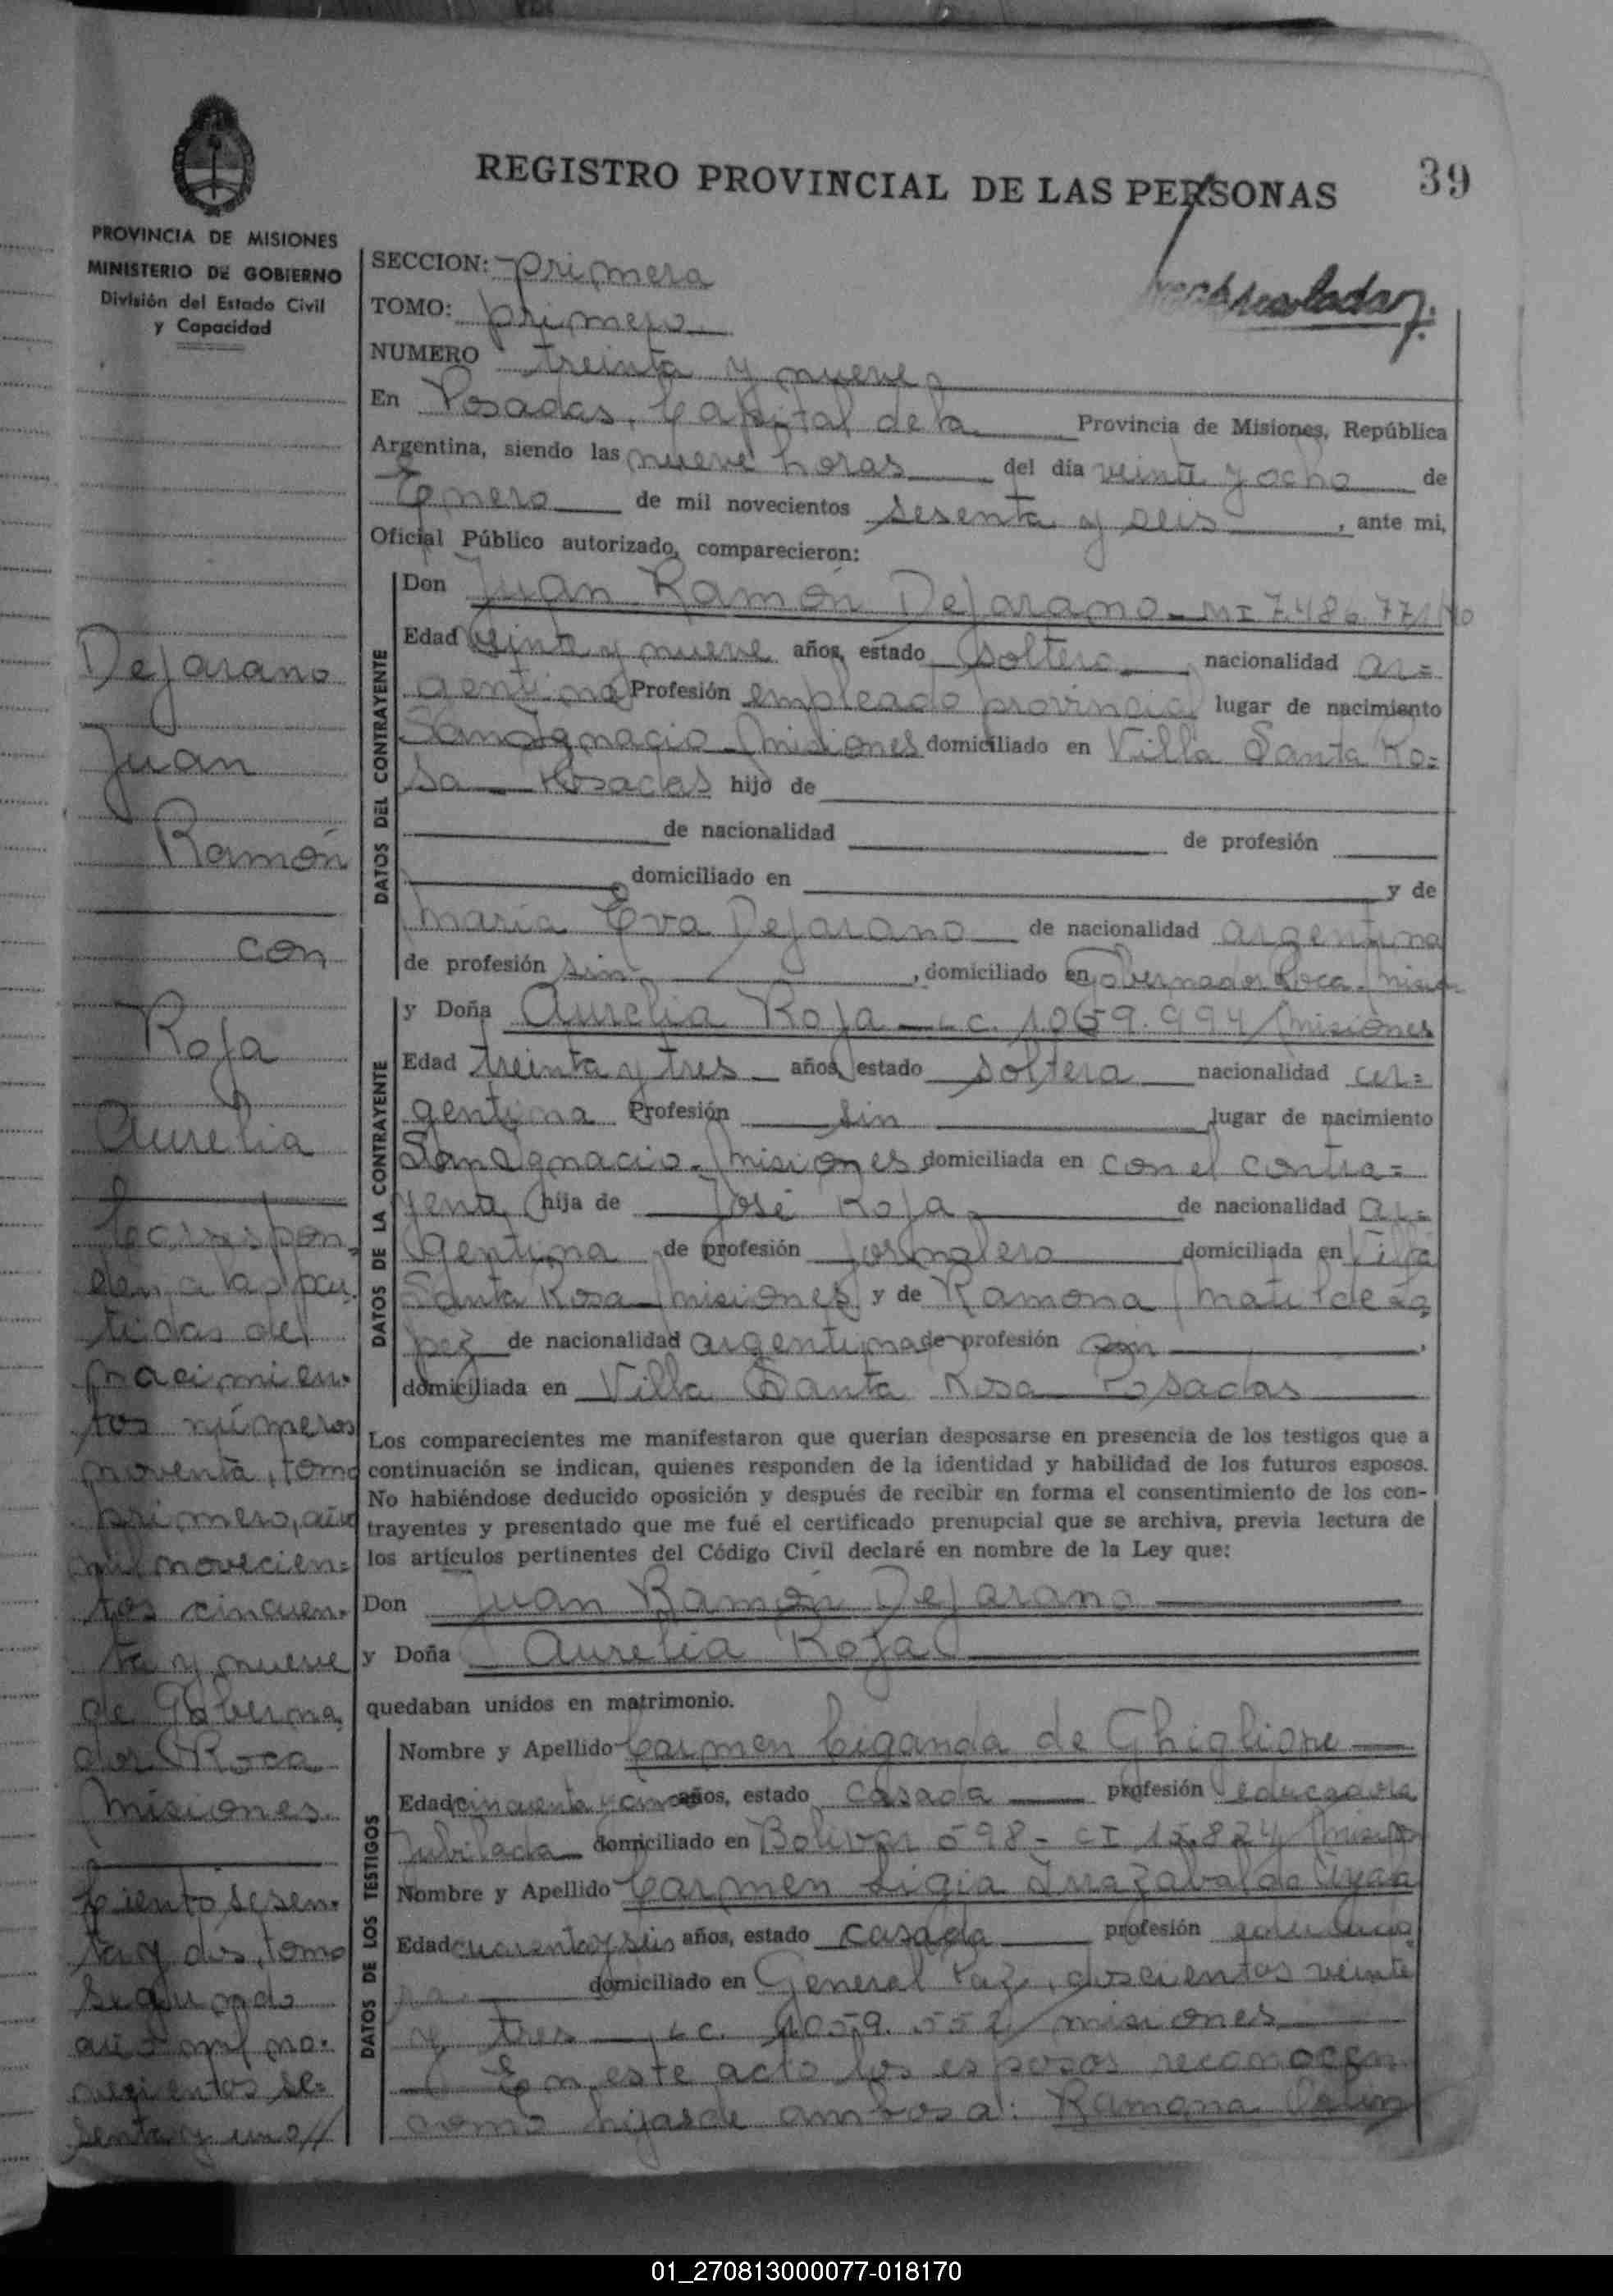 REGISTRO PROVINCIAL DE LAS PERSONAS
39
PROVINCIA DE MISIONES
MINISTERIO DE GOBIERNO
División del Estado Civil
y Capacidad
SECCION: primera
TOMO: primero
NUMERO treinta y nueve
En Posadas, Capital de la Provincia de Misiones, República
Argentina, siendo las nueve horas del día veinte y ocho de
Enero de mil novecientos sesenta y seis, ante mi,
Oficial Público autorizado, comparecieron:
DATOS DEL CONTRAYENTE
Don Juan Ramón Dejarano - MI 7.486.771
Edad veinte y nueve años, estado soltero nacionalidad ar=
gentina Profesión empleado provincial lugar de nacimiento
San Ignacio - Misiones domiciliado en Villa Santa Ro=
sa - Posadas hijo de
de nacionalidad de profesión
domiciliado en y de
María Eva Dejarano de nacionalidad argentina
de profesión sin, domiciliado en Gobernador Roca -
DATOS DE LA CONTRAYENTE
y Doña Aurelia Roja - L.C. 1.059.994 Misiones
Edad treinta y tres años, estado soltera nacionalidad ar=
gentina Profesión sin lugar de nacimiento
San Ignacio - Misiones domiciliada en con el contra=
yente hija de José Roja de nacionalidad ar=
gentina de profesión jornalero domiciliada en Villa
Santa Rosa - Misiones y de Ramona Matilde Ló
pez de nacionalidad argentina de profesión sin,
domiciliada en Villa Santa Rosa - Posadas
Los comparecientes me manifestaron que querían desposarse en presencia de los testigos que a
continuación se indican, quienes responden de la identidad y habilidad de los futuros esposos.
No habiéndose deducido oposición y después de recibir en forma el consentimiento de los con-
trayentes y presentado que me fué el certificado prenupcial que se archiva, previa lectura de
los artículos pertinentes del Código Civil declaré en nombre de la Ley que:
Don Juan Ramón Dejarano
y Doña Aurelia Roja
quedaban unidos en matrimonio.
DATOS DE LOS TESTIGOS
Nombre y Apellido Carmen Ciganda de Ghiglione
Edad cincuenta y cinco años, estado casada profesión educadora
jubilada domiciliado en Bolivar 598 - CI 15.824
Nombre y Apellido Carmen Ligia Irrazabal de Ayala
Edad cuarenta y seis años, estado casada profesión educado
ra domiciliado en General Paz, doscientos veinte
y tres - L.C. 1.059.552 misiones
En este acto los esposos reconocen
como hijas de ambos a: Ramona
Dejarano
Juan
Ramón
con
Roja
Aurelia
Correspon.
den a las par.
tidas de
nacimien.
tos números
noventa, tomo
primero, año
mil novecien=
tos cincuen.
ta y nueve
de Goberna
dor Roca
Misiones.
Ciento sesen.
ta y dos, tomo
segundo
año mil no.
vecientos se=
senta y uno//
01_270813000077-018170